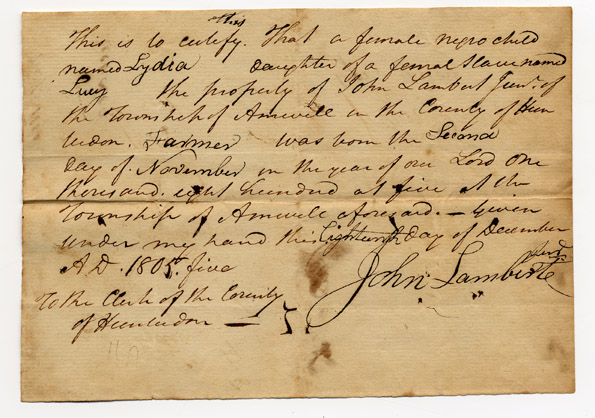 this
This is to certify. That a female negro child
named Lydia Daughter of a femal Slave named
Lucy the property of John Lambert Junr. of
the Township of Amwell in the County of Hun
terdon. Farmer was born the Second
day of November in the year of our Lord One
thousand eight hundred at five at the
Township of Amwell aforesaid. — Given
under my hand this Eighteenth day of December
A D. 1805. five
John Lambert Junr.
To the Clerk of the County
of Hunterdon —